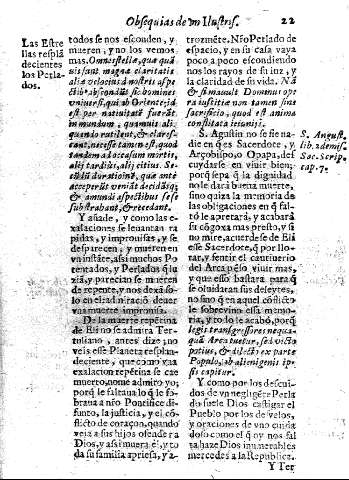 Obsequias de un Ilustriss.
22
Las Estre
llas resplã
decientes
los Perla-
dos.
todos se nos esconden, y
mueren, y no los vemos
mas. Omnes stellæ, quæ quã
uis sunt magna claritatis
alia velocius nobis ad aspe
universi, quæ ab Oriente, id
est per nativitatẽ fuerãt
in mundum, quamuis ali-
quando rutilent, & clares-
cant, necesse tamen est, quod
tandem ad occasum mortis,
alij tardiùs, alij citius, Se-
cũdũ durationẽ, quã ante
acceperũt veniat decidãtq;
& à mundi aspectibus sese
substrabant, & recedant.
Y añade, y como las ex-
alaciones se leuantan ra
pidas, y improuisas, y se
desparecen, y mueren en
vn instãte, assi muchos Po
tentados, y Perlados q̃ lu
zià, y parecian se mueren
de repente, y nos dexã so-
lo en la admiraciõ de aver
una muerte improuisa.
De la muerte repẽtina
de Eli no se admira Ter-
tuliano, antes dize; no
veis esse Planeta resplan-
deciente, que como vna
exalacion repẽtina se cae
muerto, nome admiro yo;
porq̃ le faltaua lo q̃ le so-
braua a nr̃o Pontifice di-
funto, la justicia, y el co-
flicto de coraçon, quando
veia a sus hijos ofender a
Dios, y assi muera el, y to
da su familia apriesa, y a-
trozmẽte. Nr̃o Perlado de
espacio, y en su casa vaya
poco a poco escondiendo
nos los rayos de su luz, y
la claridad de su vida.
& si mauult Dominus ope
ra iustitiæ non tamen sine
sacrificio, quod est anima
conflictata ieiunij.
S. Agustin no se fie na-
die en q̃ es Sacerdote, y
Arçobispo, Opapa, del
cuydar se en viuir bien;
porq̃ sepa q̃ la dignidad
no le dará buena muerte,
sino q̃ la memoria de
las obligaciones en q̃ fal-
tó le apretará, y acabará
su cõgoxa mas presto, y si
no mire, acuerdese de Eli
esse Sacerdote, q̃ por llo-
rar, y sentir el cautiuerio
del Arca pẽso viuir mas,
y que esso bastara para q̃
se oluidaran sus deleytes,
no sino q̃ en aquel cõflicto
le sobrevino essa memo-
ria, y todo le acabó, porq̃
legis transgressores nequa-
quã Arca tuetur, sed victo
potius, & dilecto ex parte
Populo, ab alienigenis ip-
sis capitur.
Y como por los descui-
dos de vn negligẽte Perla
do suele Dios castigar el
Pueblo por los desvelos,
y oraciones de vno cuida
doso como el q̃ oy nos fal
ta haze Dios innumerables
mercedes a la Republica.
S. August.
lib. 2. de mis.
Sac. Scrip.
cap. 7.
Y Ter